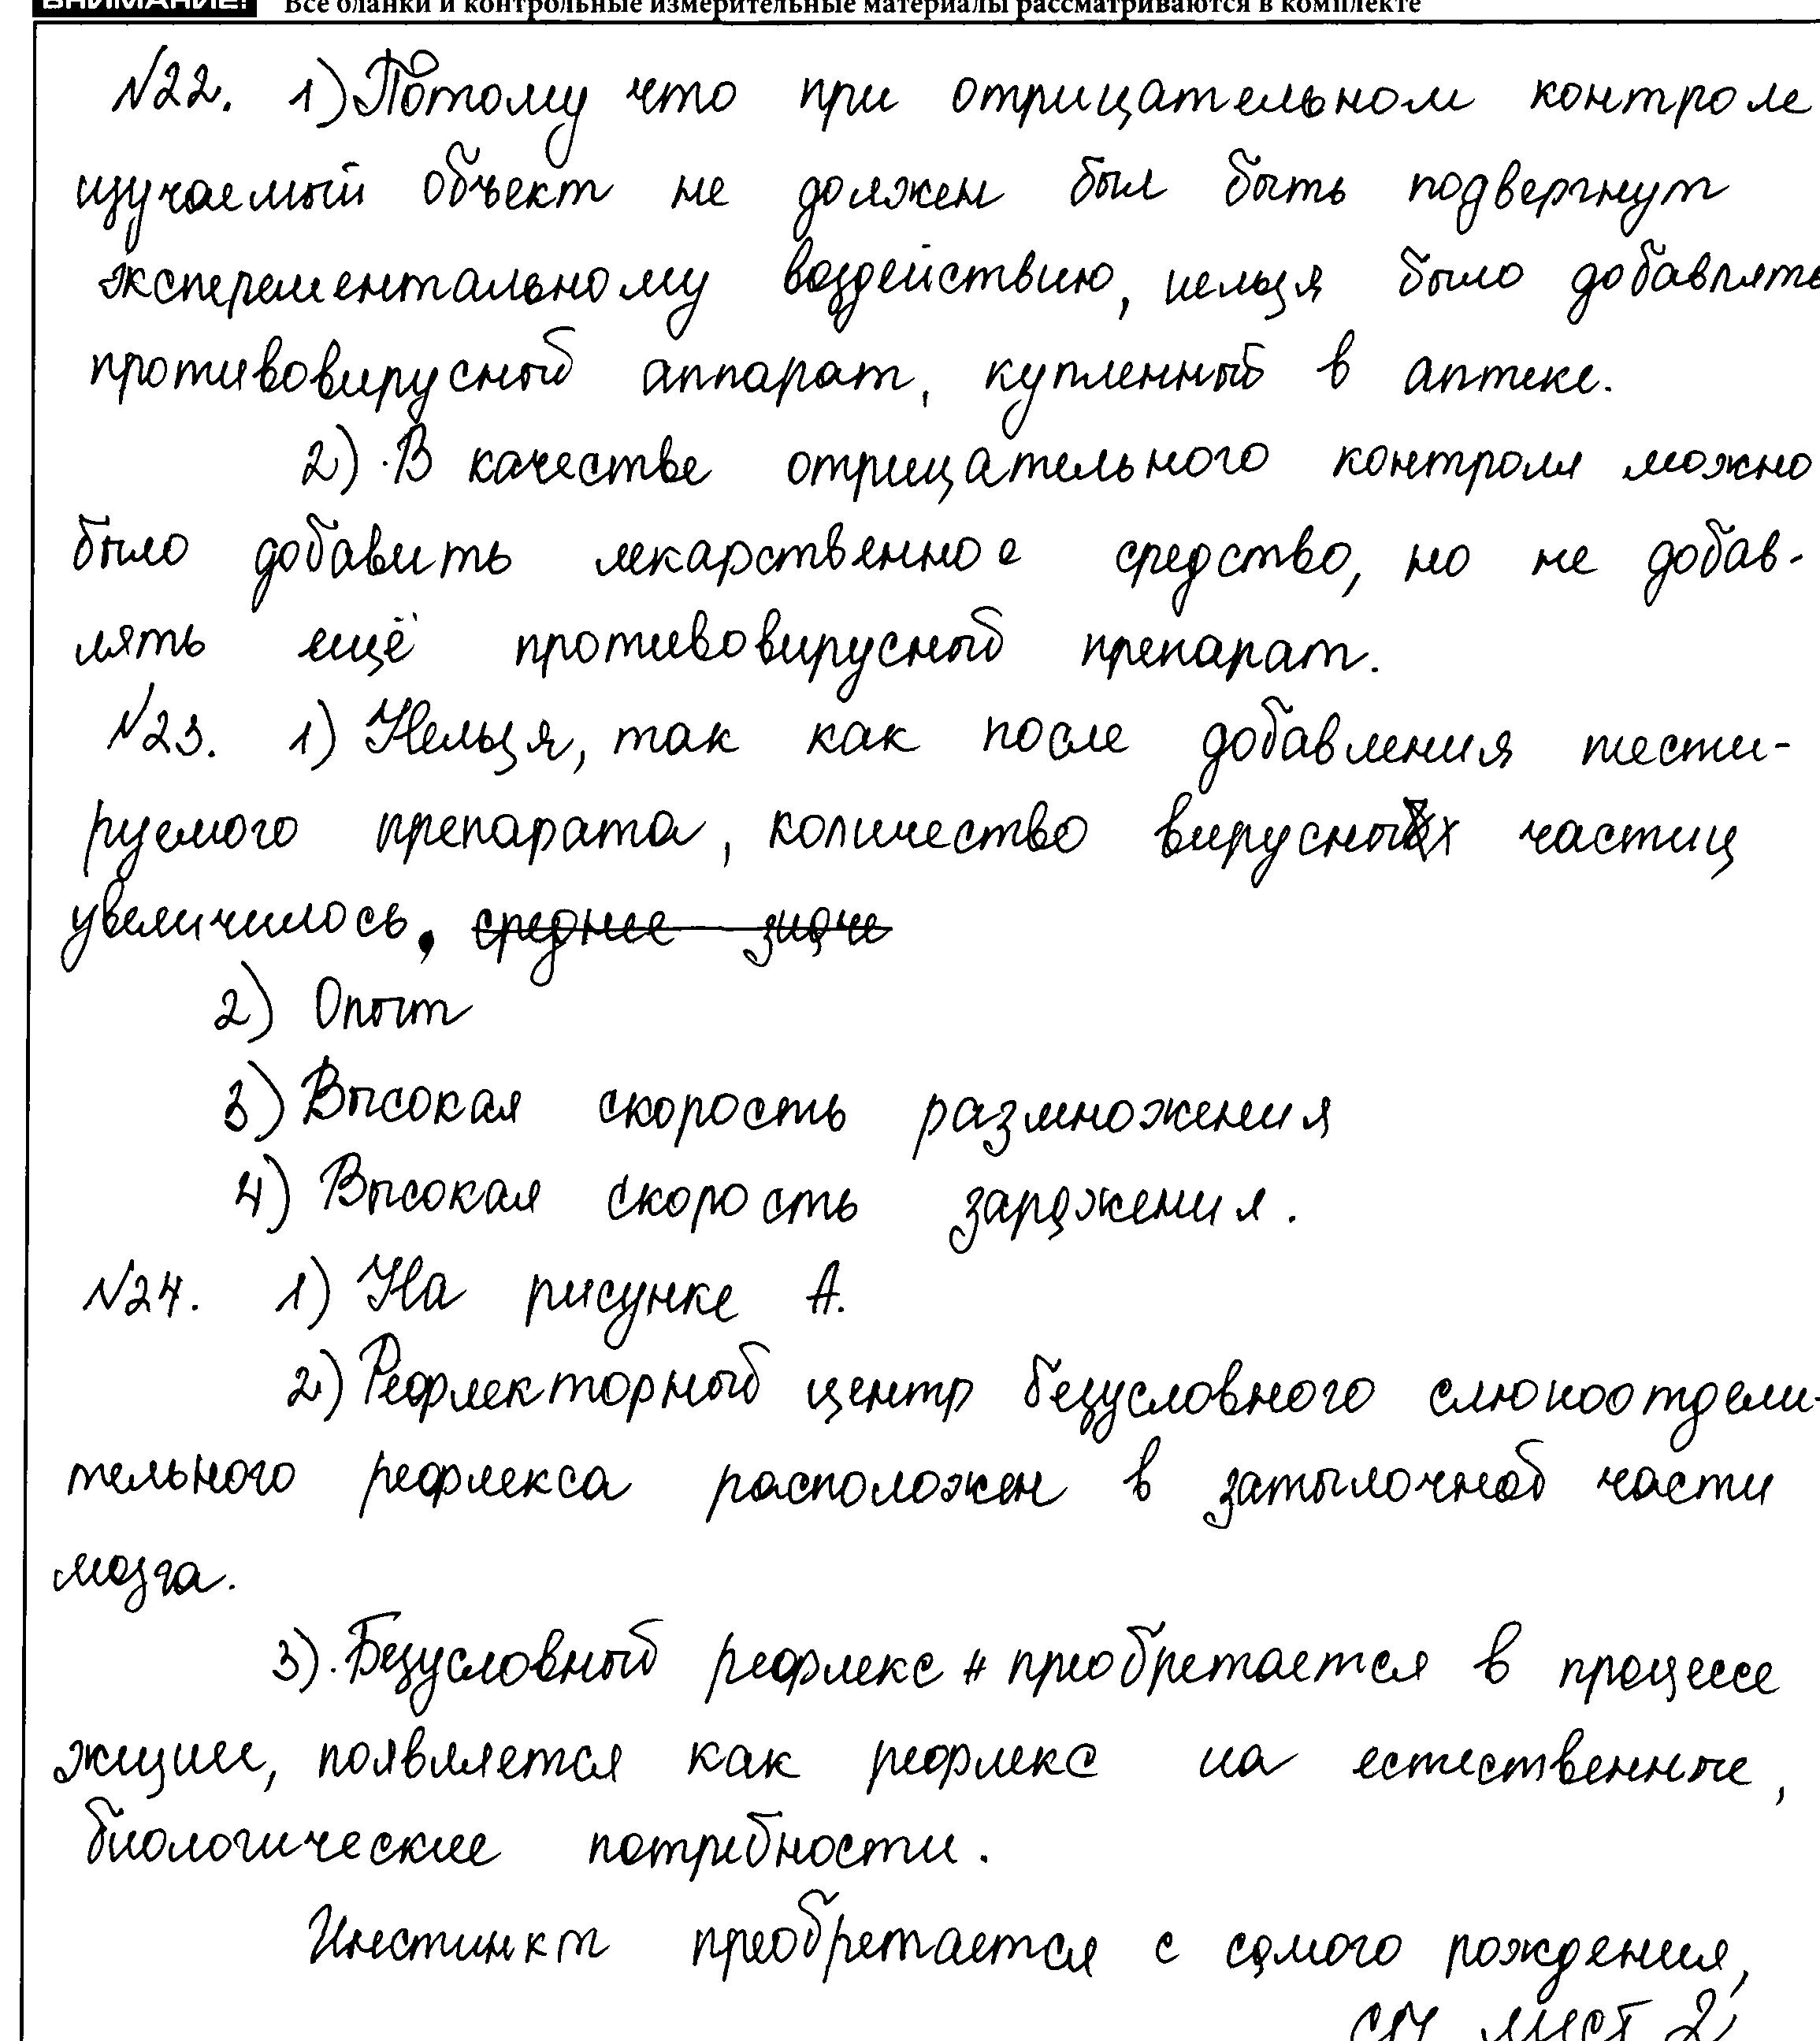 ВНИМАНИЕ! Все бланки и контрольные измерительные материалы рассматриваются в комплекте
№22. 1) Потому что при отрицательном контроле
изучаемый объект не должен был быть подвергнут
эксперементальному воздействию, нельзя было добавлять
противовирусный аппарат, купленный в аптеке.
2) В качестве отрицательного контроля можно
было добавить лекарственное средство, но не добав-
лять ещё противовирусный препарат.
№23. 1) Нельзя, так как после добавления тести-
руемого препарата, количество вирусных частиц
увеличилось. среднее значе
2) Опыт
3) Высокая скорость размножения
4) Высокая скорость заражения.
№24. 1) На рисунке А.
2) Рефлекторный центр безусловного слюноотдели-
тельного рефлекса расположен в затылочной части
мозга.
3). Безусловный рефлекс преобретается в процессе
жизни, появляется как рефлекс на естественные,
биологические потребности.
Инстинкт преобретается с самого рождения,
см лист 2